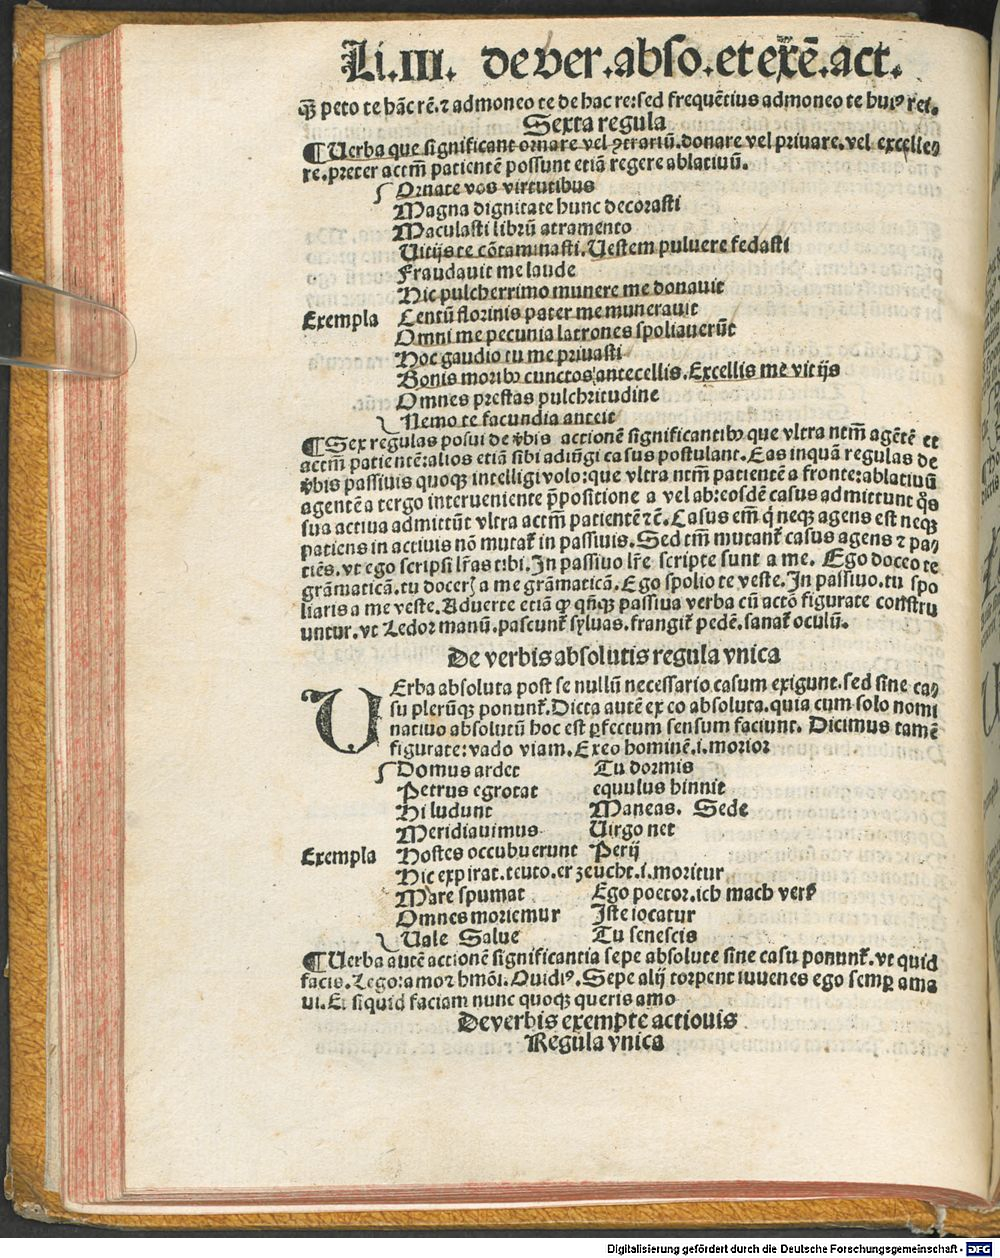 Li.III. de ver.abso.et exē.act.
q̄ꝫ peto te hāc rē.⁊ admoneo te de hac re:sed frequētius admoneo te huiꝰ rei.
Sexta regula
¶Uerba que significant ornare vel ꝯtrariū.donare vel priuare.vel excelle⸗
re.preter actm̄ patientē possunt etiā regere ablatiuū.
Ornate vos virtutibus
Magna dignitate hunc decorasti
Maculasti librū atramento
Uitijs te cōtaminasti.Uestem puluere fedasti
Fraudauit me laude
Hic pulcherrimo munere me donauit
Exempla Centū florinis pater me munerauit
Omni me pecunia latrones spoliauerūt
Hoc gaudio tu me priuasti
Bonis moribꝫ cunctos antecellis.Excellis me vitijs
Omnes prestas pulchritudine
Nemo te facundia anteit
¶Sex regulas posui de v̄bis actionē significantibꝫ que vltra ntm̄ agētē et
actm̄ patientē:alios etiā sibi adiūgi casus postulant.Eas inquā regulas de
v̄bis passiuis quoqꝫ intelligi volo:que vltra ntm̄ patientē a fronte:ablatiuū
agentē a tergo interueniente p̄positione a vel ab:eosdē casus admittunt q̄s
sua actiua admittūt vltra actm̄ patientē ⁊c̄.Casus em̄ q̇ neqꝫ agens est neqꝫ
patiens in actiuis nō mutat᷑ in passiuis.Sed tm̄ mutant᷑ casus agens ⁊ pa⸗
tiēs.vt ego scripsi lr̄as tibi.In passiuo lr̄e scripte sunt a me. Ego doceo te
grāmaticā.tu doceris a me grāmaticā.Ego spolio te veste.In passiuo.tu spo
liaris a me veste.Aduerte etiā ꝙ qn̄qꝫ passiua verba cū actō figurate constru
untur.vt Ledor manū.pascunt᷑ syluas.frangit᷑ pedē.sanat᷑ oculū.
De verbis absolutis regula vnica
UErba absoluta post se nullū necessario casum exigunt.sed sine ca⸗
su plerūqꝫ ponunt᷑.Dicta autē ex eo absoluta.quia cum solo nomi
natiuo absolutū hoc est ꝑfectum sensum faciunt. Dicimus tamē
figurate:vado viam.Exeo hominē.i.morior
Domus ardet Tu dormis
Petrus egrotat equulus hinnit
Hi ludunt Maneas. Sede
Meridiauimus Uirgo net
Exempla Hostes occubuerunt Perij
Hic expirat.teuto.er zeucht.i.moritur
Mare spumat Ego poetor.ich mach verß
Omnes moriemur Iste iocatur
Uale Salue Tu senescis
¶Uerba autē actionē significantia sepe absolute sine casu ponunt᷑.vt quid
facis.Lego:amo⁊ hmōi.Ouidiꝰ.Sepe alij torpent iuuenes ego semꝑ ama
ui.Et siquid faciam nunc quoqꝫ queris amo
De verbis exempte actionis
Regula vnica
Digitalisierung gefördert durch die Deutsche Forschungsgemeinschaft - DFG